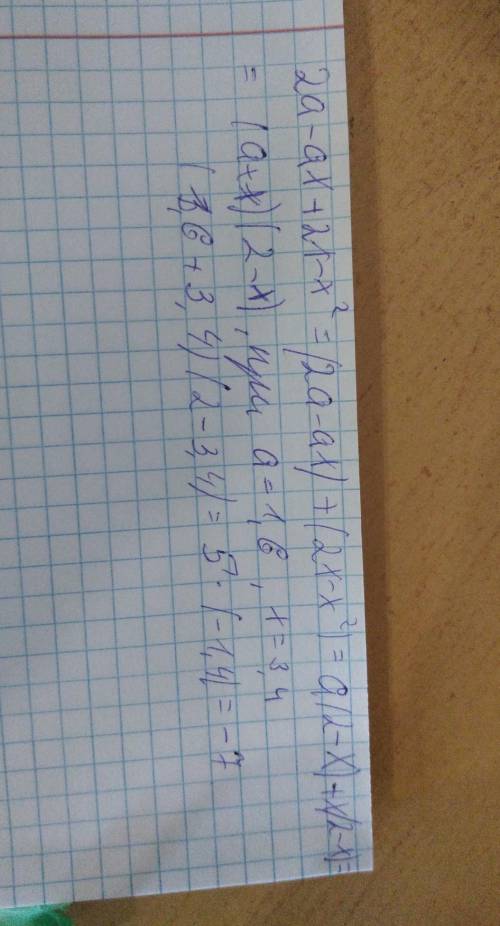 2a-ax+2x-x²=(2a-ax)+(2x-x²)=a(2-x)+x(2-x)=
=(a+x)(2-x), при a=1,6, x=3,4
(1,6+3,4)(2-3,4)=5·(-1,4)=-7